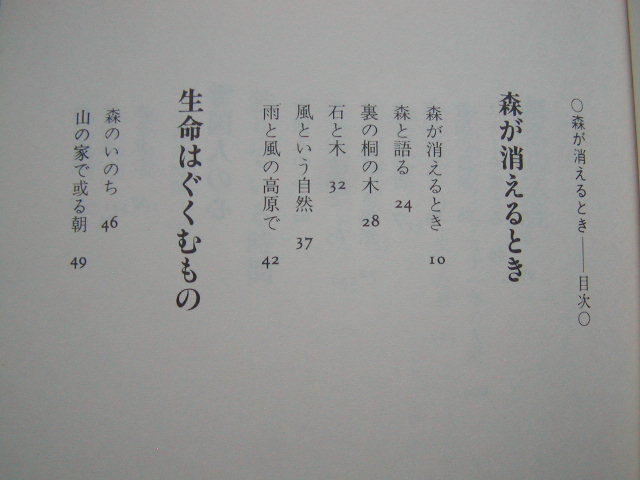 ○森が消えるとき――目次○
森が消えるとき
森が消えるとき 10
森と語る 24
裏の桐の木 28
石と木 32
風という自然 37
雨と風の高原で 42
生命はぐくむもの
森のいのち 46
山の家で或る朝 49